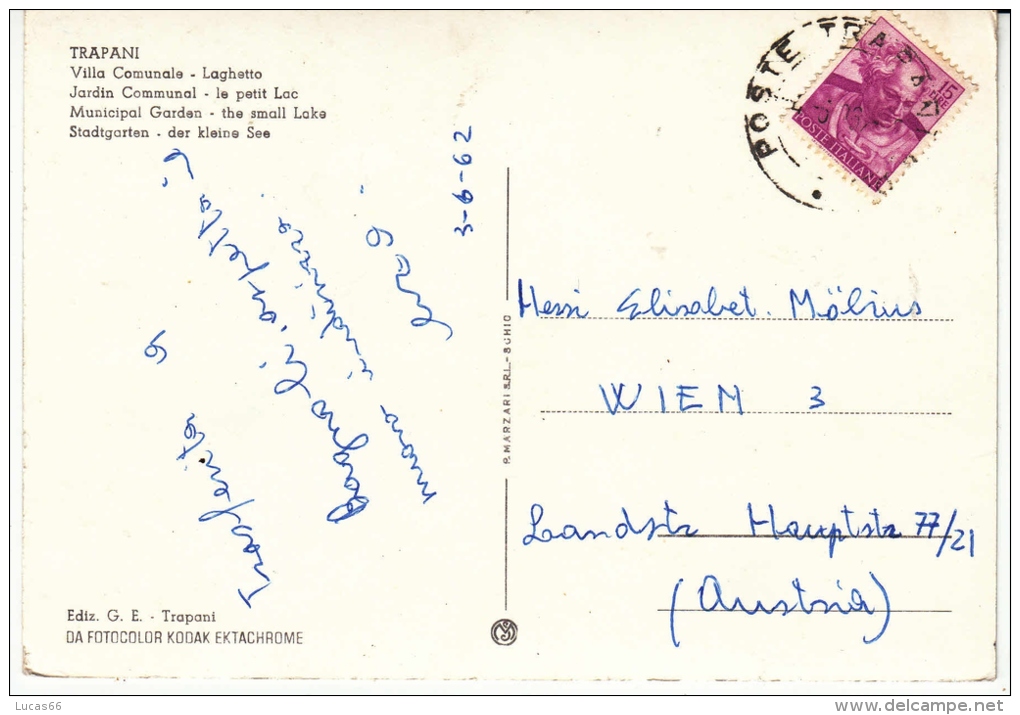 TRAPANI
Villa Comunale - Laghetto
Jardin Communal - le petit Lac
Municipal Garden - the small Lake
Stadtgarten - der kleine See
3-6-62
Trasferita a
Bagnoli aspetta
nuovo indirizzo
POSTE TRAPANI
15 LIRE
POSTE ITALIANE
P. MARZARI S.R.L. - SCHIO
Herri Elisabet. Möbius
WIEM 3
Landstr Hauptstr 77/21
(Austria)
Ediz. G. E. - Trapani
DA FOTOCOLOR KODAK EKTACHROME
Lucas66
delcampe.net